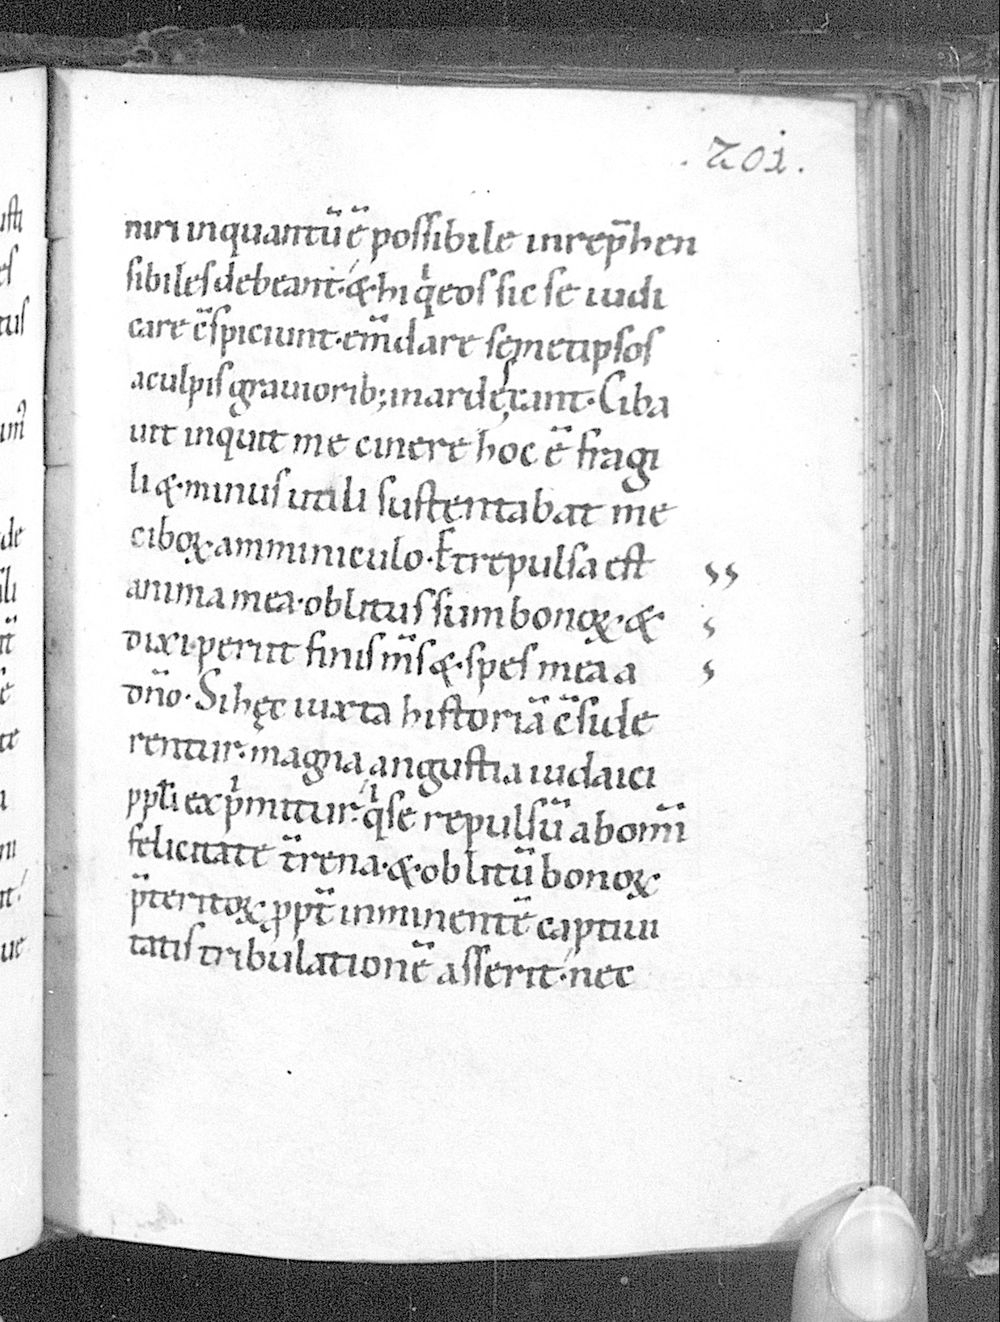 .201.
niri inquantū ē possibile inrep̄hen
sibiles debeant. & hi q̇ eos sic se iudi
care c̄spiciunt. em̄dare semetipsos
aculpis grauiorib; inardescant. Ciba
uit inquit me cinere hoc ē fragi
li & minus utili sustentabat me
ciboꝝ amminiculo. Et repulsa est
anima mea. oblitus sum bonoꝝ. &
dixi. periit finis m̄s & spes mea a
dn̄o. Si hęc iuxta historiā c̄side
rentur. magna angustia iudaici
ppl̄i exp̍mitur. q̍ se repulsū ab om̄i
felicitate t̄rena. & oblitū bonoꝝ
p̄teritoꝝ ꝓpt̄ inminentē captiui
tatis tribulationē asserit. nec